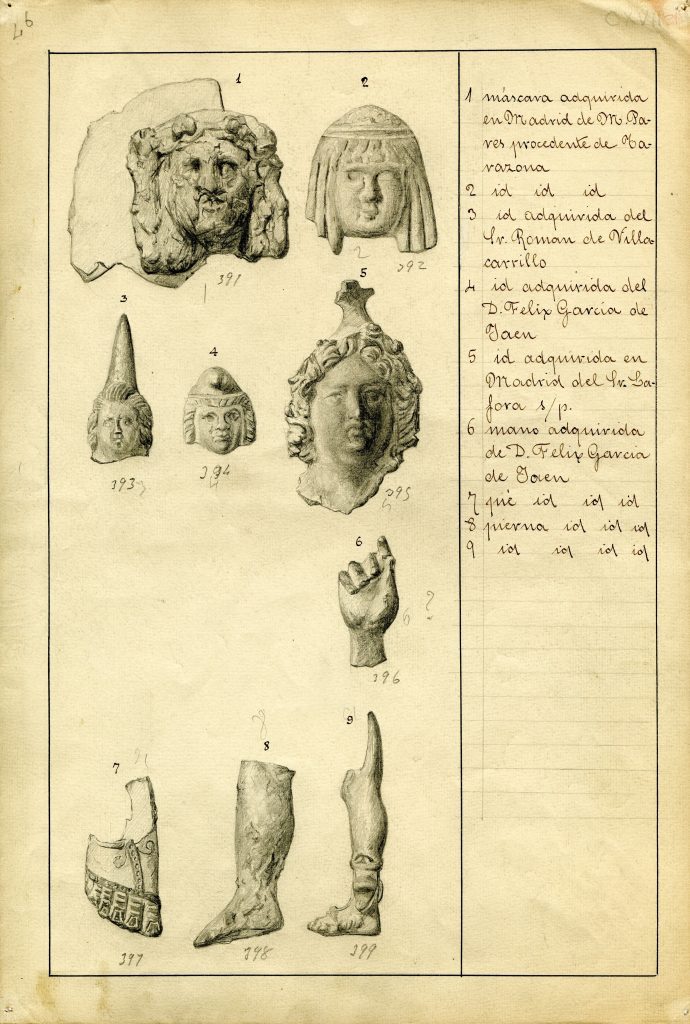 46
CXVII
1
2
391
392
3
4
5
393
394
395
6
6 ?
396
7
8
9
397
398
399
1 máscara adquirida
en Madrid de M. Pa-
res procedente de Ta-
razona
2 id id id
3 id adquirida del
Sr. Roman de Villa-
carrillo
4 id adquirida del
D. Felix García de
Jaen
5 id adquirida en
Madrid del Sr. La-
fora s/p.
6 mano adquirida
de D. Felix Garcia
de Jaen
7 pié id id id
8 pierna id id id
9 id id id id